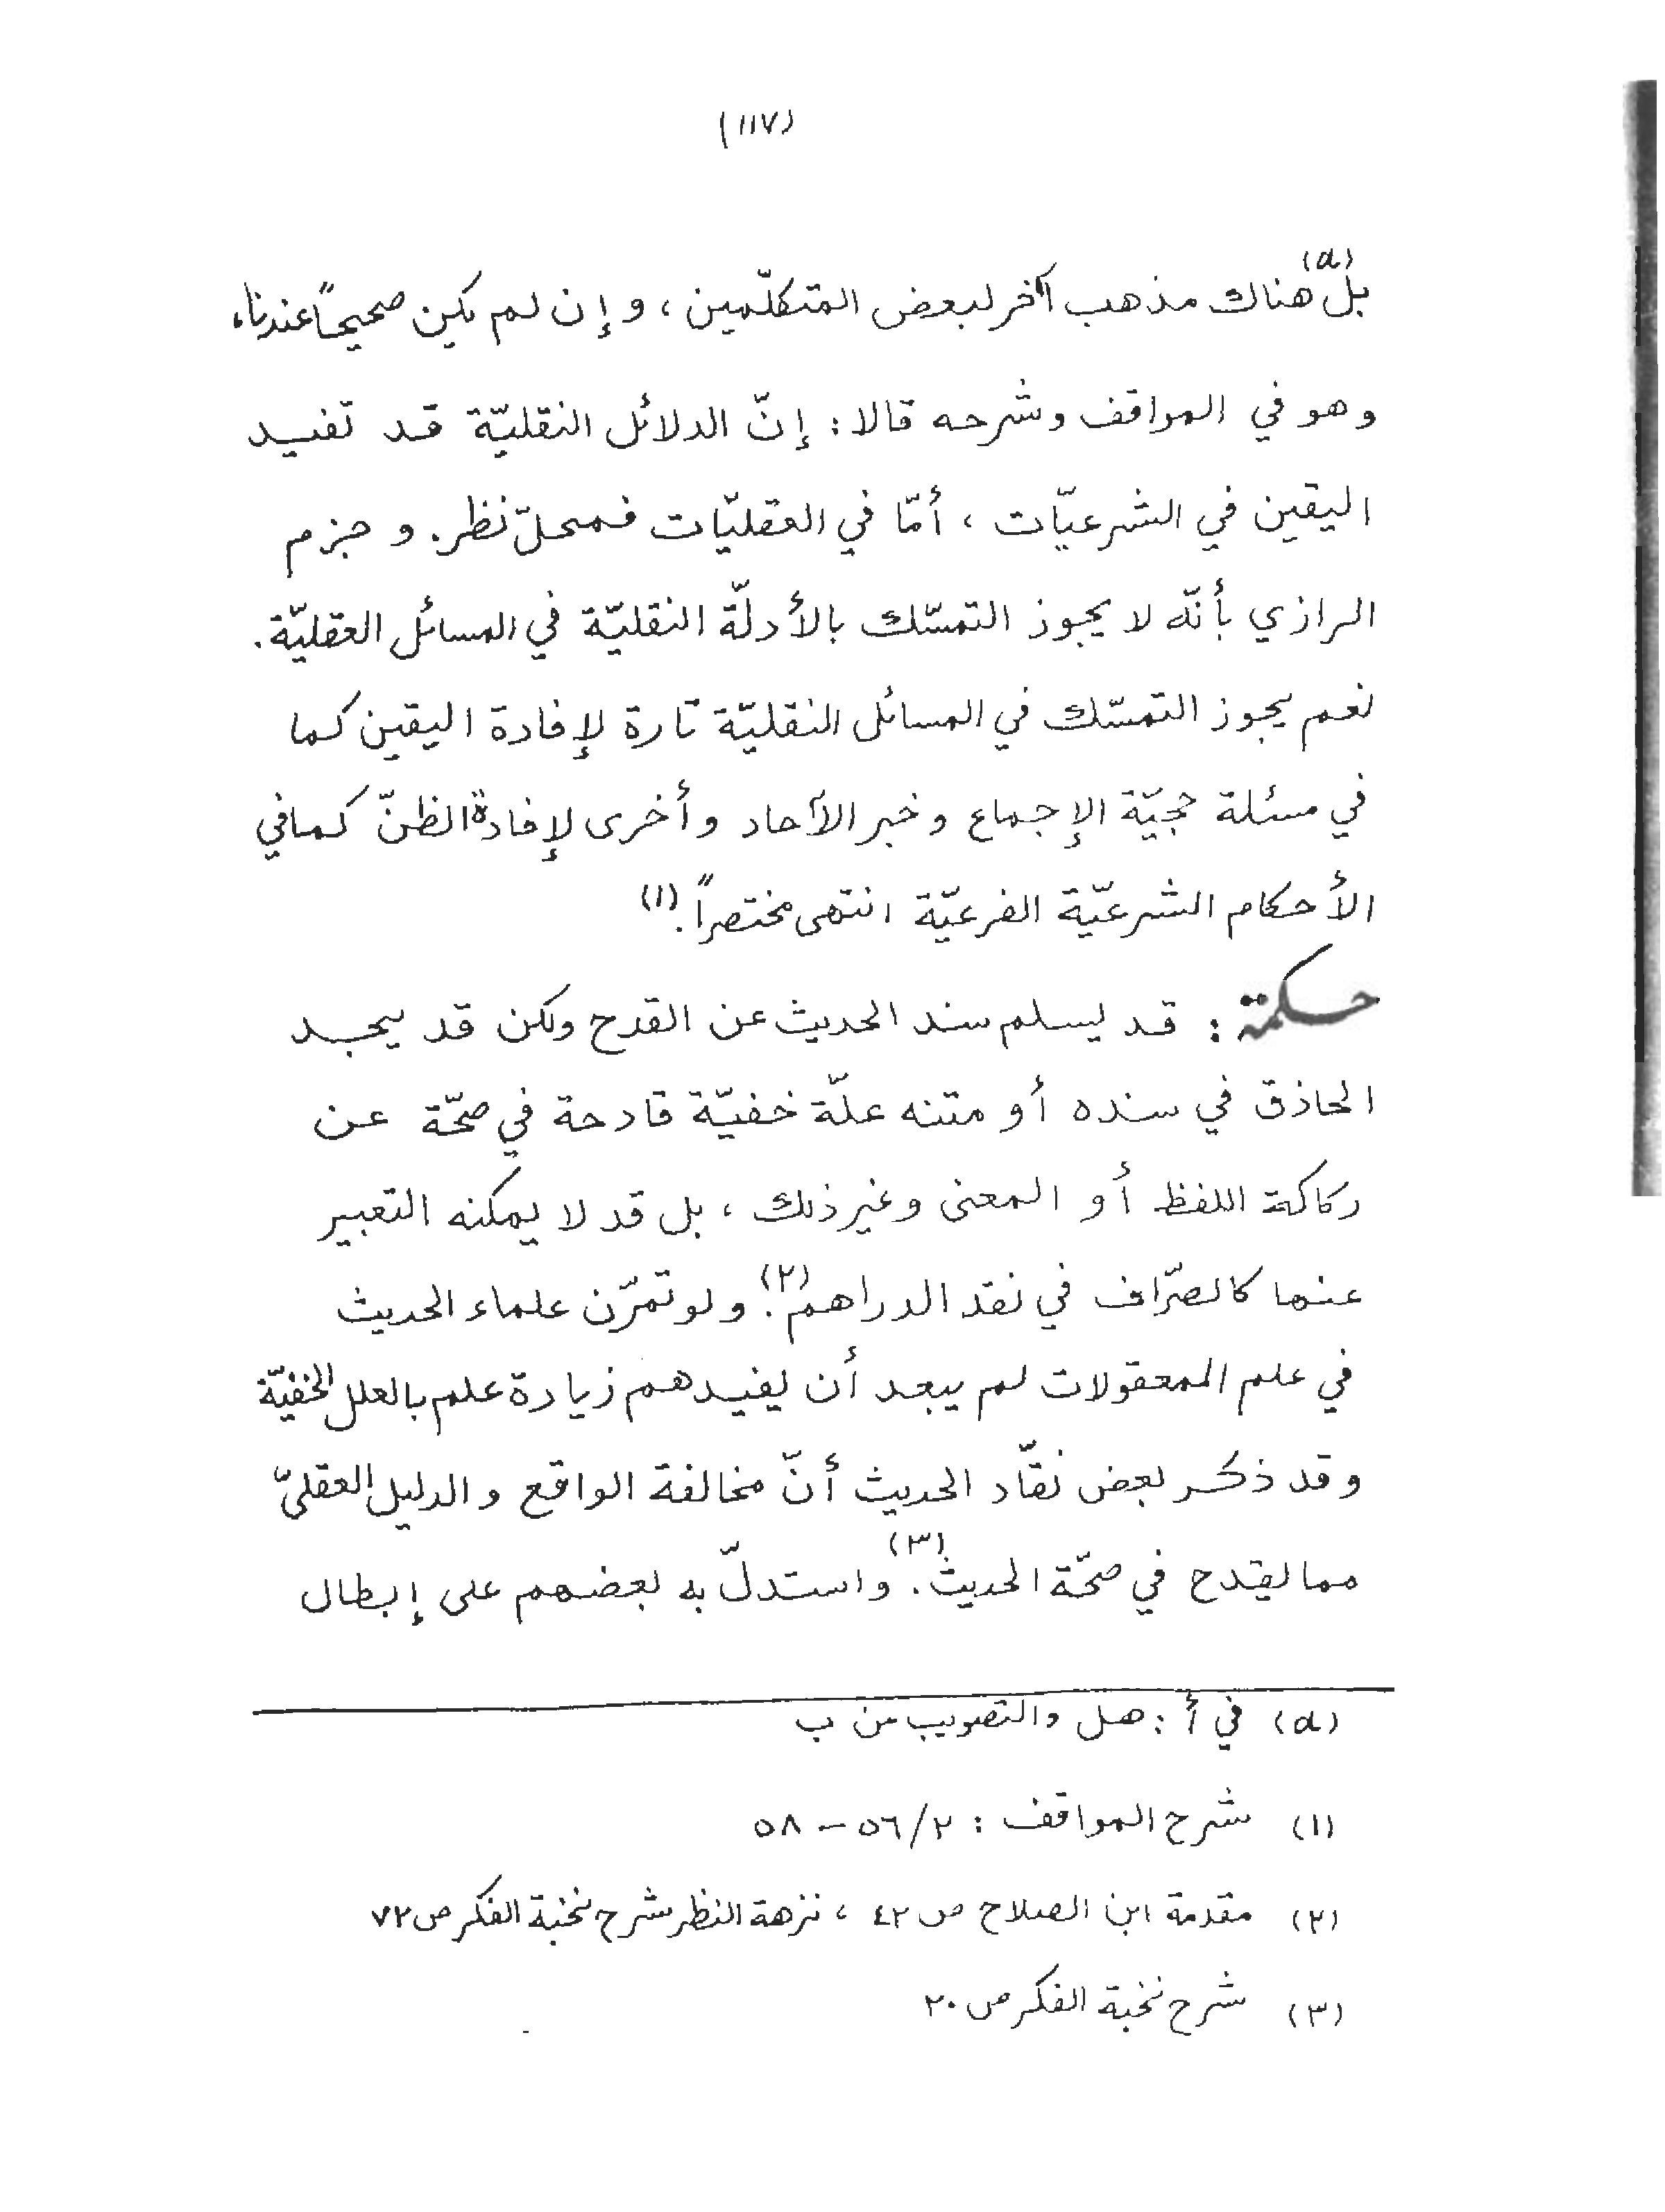 (١١٧)
بل(a) هناك مذهب آخر لبعض المتكلّمين ، وإن لم يكن صحيحاً عندنا،
وهو في المواقف وشرحه قالا : إنّ الدلائل النقليّة قد تفيد
اليقين في الشرعيّات ، أمّا في العقليّات فمحلّ نظر. وجزم
الرازي بأنّه لا يجوز التمسّك بالأدلّة النقليّة في المسائل العقليّة.
نعم يجوز التمسّك في المسائل النقليّة تارة لإفادة اليقين كما
في مسئلة حجيّة الإجماع وخبر الآحاد وأخرى لإفادة الظنّ كما في
الأحكام الشرعيّة الفرعيّة انتهى مختصراً.(١)
حكمة : قد يسلم سند الحديث عن القدح ولكن قد يجد
الحاذق في سنده أو متنه علّة خفيّة قادحة في صحّة عن
ركاكة اللفظ أو المعنى وغير ذلك ، بل قد لا يمكنه التعبير
عنها كالصرّاف في نقد الدراهم.(٢) ولو تمرّن علماء الحديث
في علم المعقولات لم يبعد أن يفيدهم زيادة علم بالعلل الخفيّة
وقد ذكر بعض نقّاد الحديث أنّ مخالفة الواقع والدليل العقليّ
مما يقدح في صحّة الحديث.(٣) واستدلّ به بعضهم على إبطال
(a) في أ : هل والتصويب من ب
(١) شرح المواقف : ٢/٥٦ – ٥٨
(٢) مقدمة ابن الصلاح ص ٤٢ ، نزهة النظر شرح نخبة الفكر ص ٧٢
(٣) شرح نخبة الفكر ص ٢٠